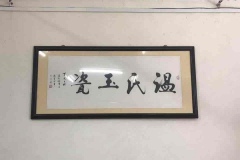 温氏玉瓷